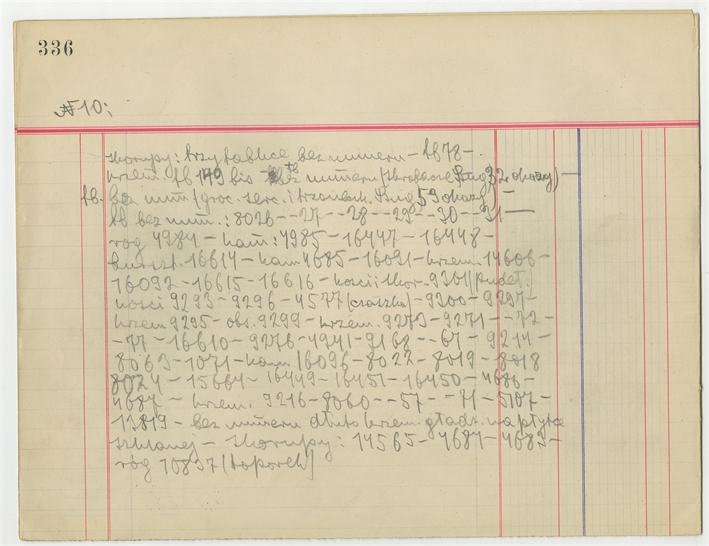 336
№ 10:
skorupy: trzy tablice bez numeru - tb 78 -
krzem. tb 149 bis - bez numeru /skrobacze Sztug 32 okazy/ -
tb. bez num /groc. serc. i trzonach. Sztug 59 okazy/ -
tb bez num.: 8026 - -27 - -28 - -29 - -30 - -31 -
róg 4984 - kam: 4985 - 16447 - 16448 -
burszt. 16614 - kam 4685 - 16091 - krzem. 14606 -
16092 - 16615 - 16616 - kości i skor. 9301 /pudeł./
kości 9293 - 9296 - 4577 /czaszka/ - 9300 - 9287 -
krzem 9295 - obs. 9299 - krzem. 9273 - 9271 - -72 -
-77 - 16610 - 9276 - 4941 - 9168 - -67 - 9214 -
8063 - 1071 - kam 16096 - 8022 - 8019 - 8018
8024 - 15664 - 16449 - 16451 - 16450 - 4686 -
4687 - krzem. 9216 - 8060 - -57 - -71 - 5107 -
13819 - bez numeru dłuto krzem. gładz. na płytce
szklanej - skorupy: 14565 - 4684 - 4683 -
róg 10837 /toporek/